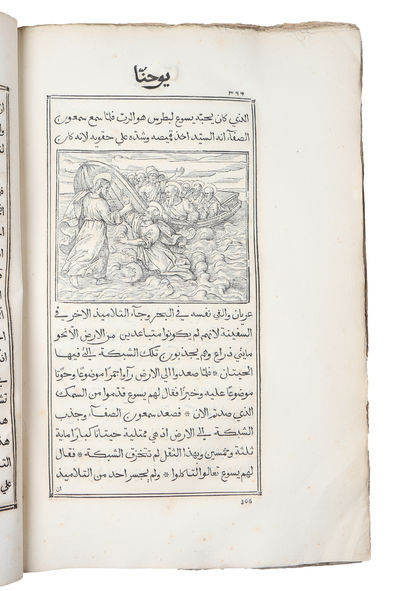 يوحنّا
٣٦٦
الذي كان يحبّه يسوع لبطرس هو الرب فلمّا سمع سمعون
الصفآء انه السيّد اخذ قميصه وشدّه علي حقويه لانه كان
عريان والقي نفسه في البحر وجآء التلاميذ الاخر في
السفينة لانهم لم يكونوا متباعدين من الارض الّا نحو
مايتي ذراع وهم يجذبون تلك الشبكة الي فيها
الحيتان * فلمّا صعدوا الي الارض رآوا جمرًا موضوعًا وحوتًا
موضوعًا عليه وخبزًا فقال لهم يسوع قدّموا من السمك
الذي صدتم الان * فصعد سمعون الصفآء وجذب
الشبكة الي الارض اذ هي ممتلية حيتانًا كبارًا ماية
ثلثة وخمسين وبهذا الثقل لم تتخرق الشبكة * فقال
لهم يسوع تعالوا لتاكلوا * ولم يجسر احد من التلاميذ
ان
366